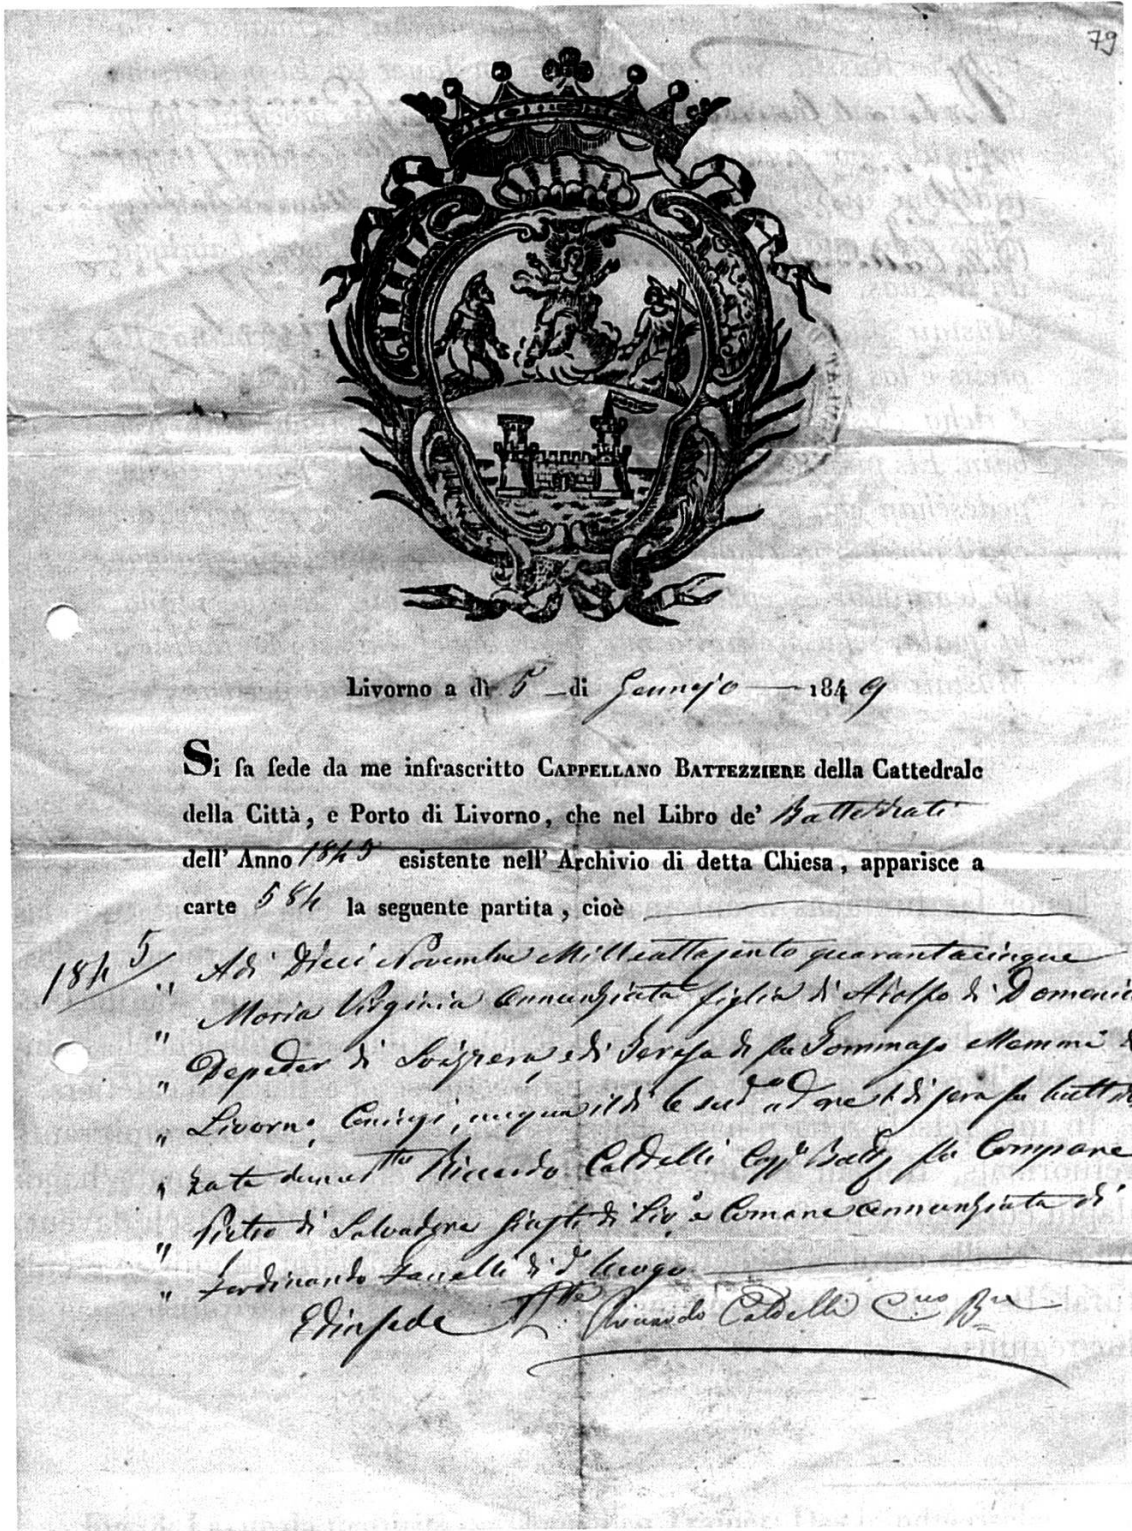 79
Livorno a dì 5 di Gennajo 1849
Si fa fede da me infrascritto CAPPELLANO BATTEZZIERE della Cattedrale
della Città, e Porto di Livorno, che nel Libro de' Battezzati
dell' Anno 1845 esistente nell' Archivio di detta Chiesa, apparisce a
carte 584 la seguente partita, cioè
1845 „ Adi Dieci Novembre Milleottocento quarantacinque
„ Maria Virginia Annunziata figlia di Adolfo di Domenico
„ Depeder di Svizzera, e di Teresa di fu Tommaso Memmi di
„ Livorno, Coniugi, nacque il dì
„ zata da me Riccardo Caldelli Capp. Batt. fu Compare
„ Pietro di Salvadore Giusti di Liv.o e Comare Annunziata di
„ Ferdinando Zanelli di d.o luogo
Ed in fede Riccardo Caldelli C.no B.re